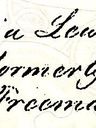 a Lew
formerly
Freema